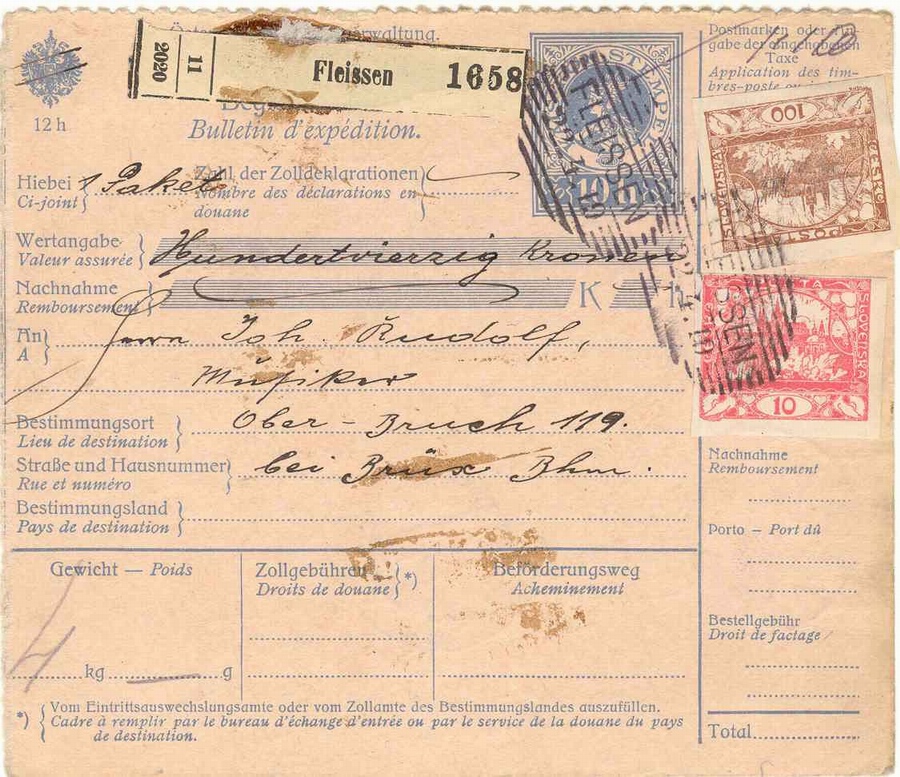 Postmarken oder An-
gabe der angehabenen
Taxe
Application des tim-
bres-poste ou
11
2020
Fleissen 1658
12 h
Bulletin d'expédition.
STEMPEL
10
FLEISSEN
Hiebei
Ci-joint
1 Paket
Zahl der Zolldeklarationen
Nombre des déclarations en
douane
100
ČESKO
SLOVENSKÁ
POŠTA
Wertangabe
Valeur assurée
Hundertvierzig Kronen
Nachnahme
Remboursement
K
An
A
Herrn Joh. Rudolf,
Musiker
SLOVENSKÁ
10
FLEISSEN
Bestimmungsort
Lieu de destination
Ober-Bruch 119.
Straße und Hausnummer
Rue et numéro
bei Brüx Bhm.
Bestimmungsland
Pays de destination
Nachnahme
Remboursement
Porto — Port dû
Bestellgebühr
Droit de factage
Total
Gewicht — Poids
Zollgebühren
Droits de douane
*)
Beförderungsweg
Acheminement
4 kg g
*) Vom Eintrittsauswechslungsamte oder vom Zollamte des Bestimmungslandes auszufüllen.
Cadre à remplir par le bureau d'échange d'entrée ou par le service de la douane du pays
de destination.